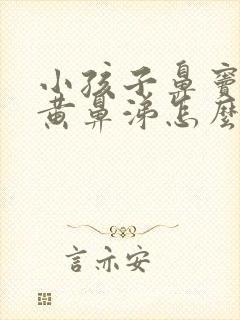 小孩子鼻窦
黄鼻涕怎麽
言亦安